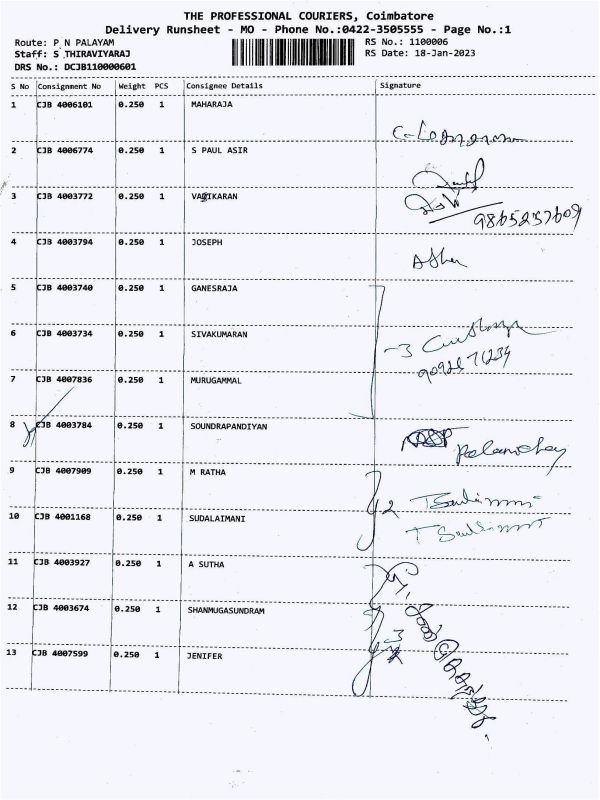 THE PROFESSIONAL COURIERS, Coimbatore
Delivery Runsheet - MO - Phone No.:0422-3505555 - Page No.:1
Route: P N PALAYAM RS No.: 1100006
Staff: S THIRAVIYARAJ RS Date: 18-Jan-2023
DRS No.: DCJB110000601
S No Consignment No Weight PCS Consignee Details Signature
1 CJB 4006101 0.250 1 MAHARAJA
2 CJB 4006774 0.250 1 S PAUL ASIR
3 CJB 4003772 0.250 1 9865237609
4 CJB 4003794 0.250 1 JOSEPH
5 CJB 4003740 0.250 1 GANESRAJA
6 CJB 4003734 0.250 1 SIVAKUMARAN
7 CJB 4007836 0.250 1 MURUGAMMAL
8 CJB 4003784 0.250 1 SOUNDRAPANDIYAN
9 CJB 4007909 0.250 1 M RATHA 2
10 CJB 4001168 0.250 1 SUDALAIMANI
11 CJB 4003927 0.250 1 A SUTHA
12 CJB 4003674 0.250 1 SHANMUGASUNDRAM
3
13 CJB 4007599 0.250 1 JENIFER